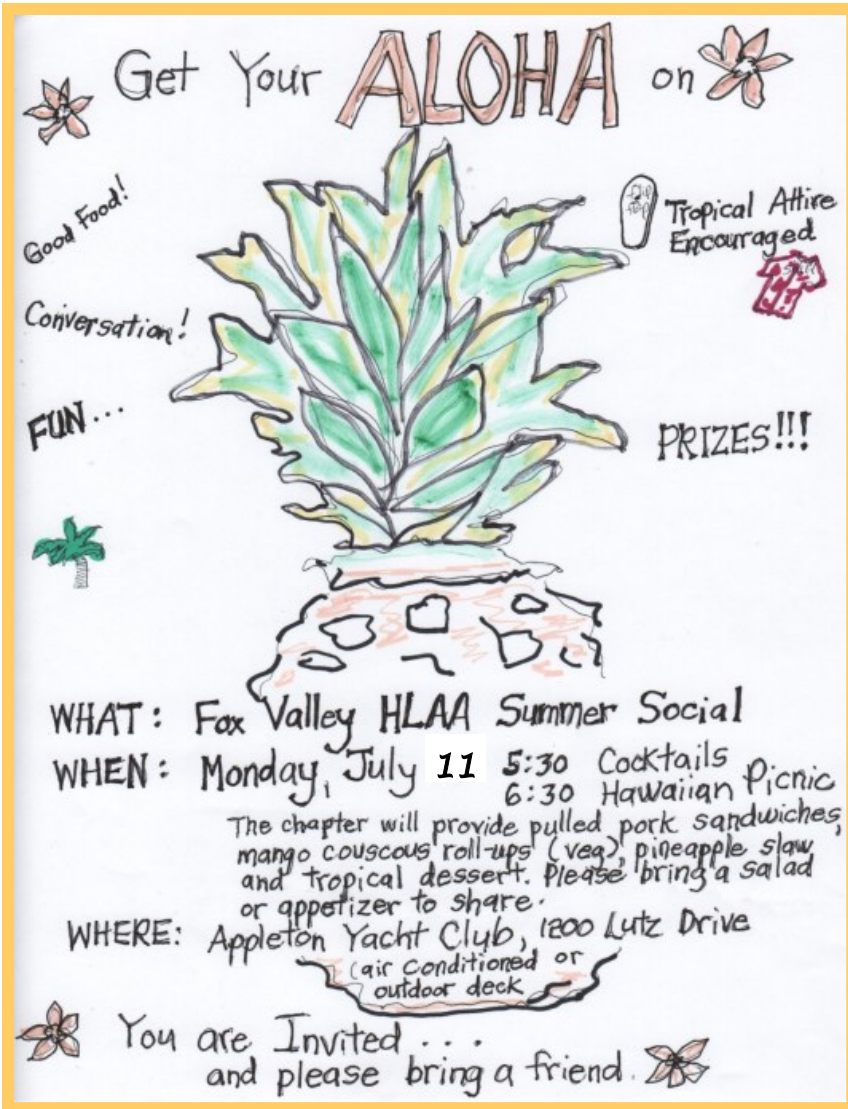 Get Your ALOHA on
Good Food!
Tropical Attire
Encouraged
Conversation!
FUN...
PRIZES!!!
WHAT: Fox Valley HLAA Summer Social
WHEN: Monday, July 11 5:30 Cocktails
6:30 Hawaiian Picnic
The chapter will provide pulled pork sandwiches,
mango couscous roll-ups (veg), pineapple slaw
and tropical dessert. Please bring a salad
or appetizer to share.
WHERE: Appleton Yacht Club, 1200 Lutz Drive
(air conditioned or
outdoor deck
You are Invited...
and please bring a friend.